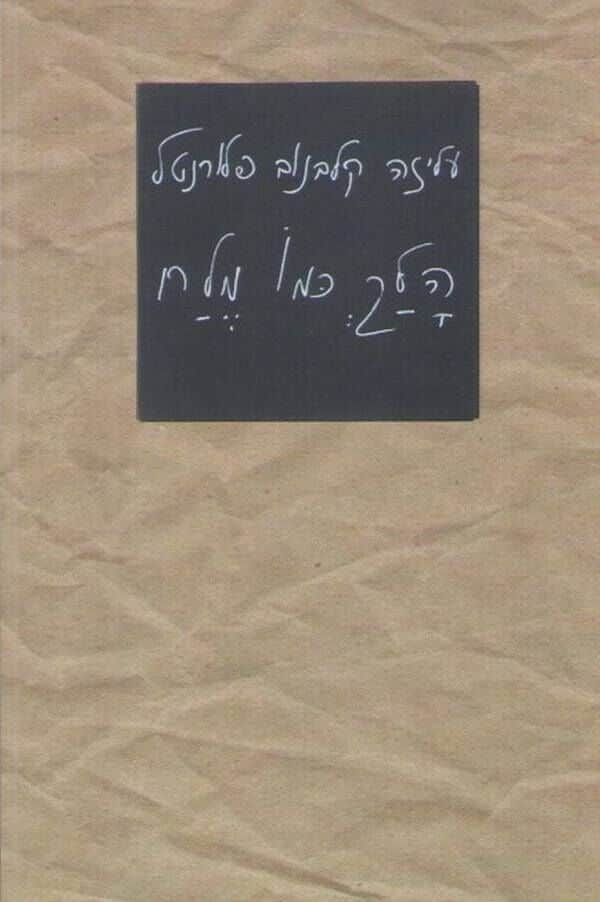 עליזה קלבנוב פלורנטל
הָלַךְ כמוֹ מֶלַח